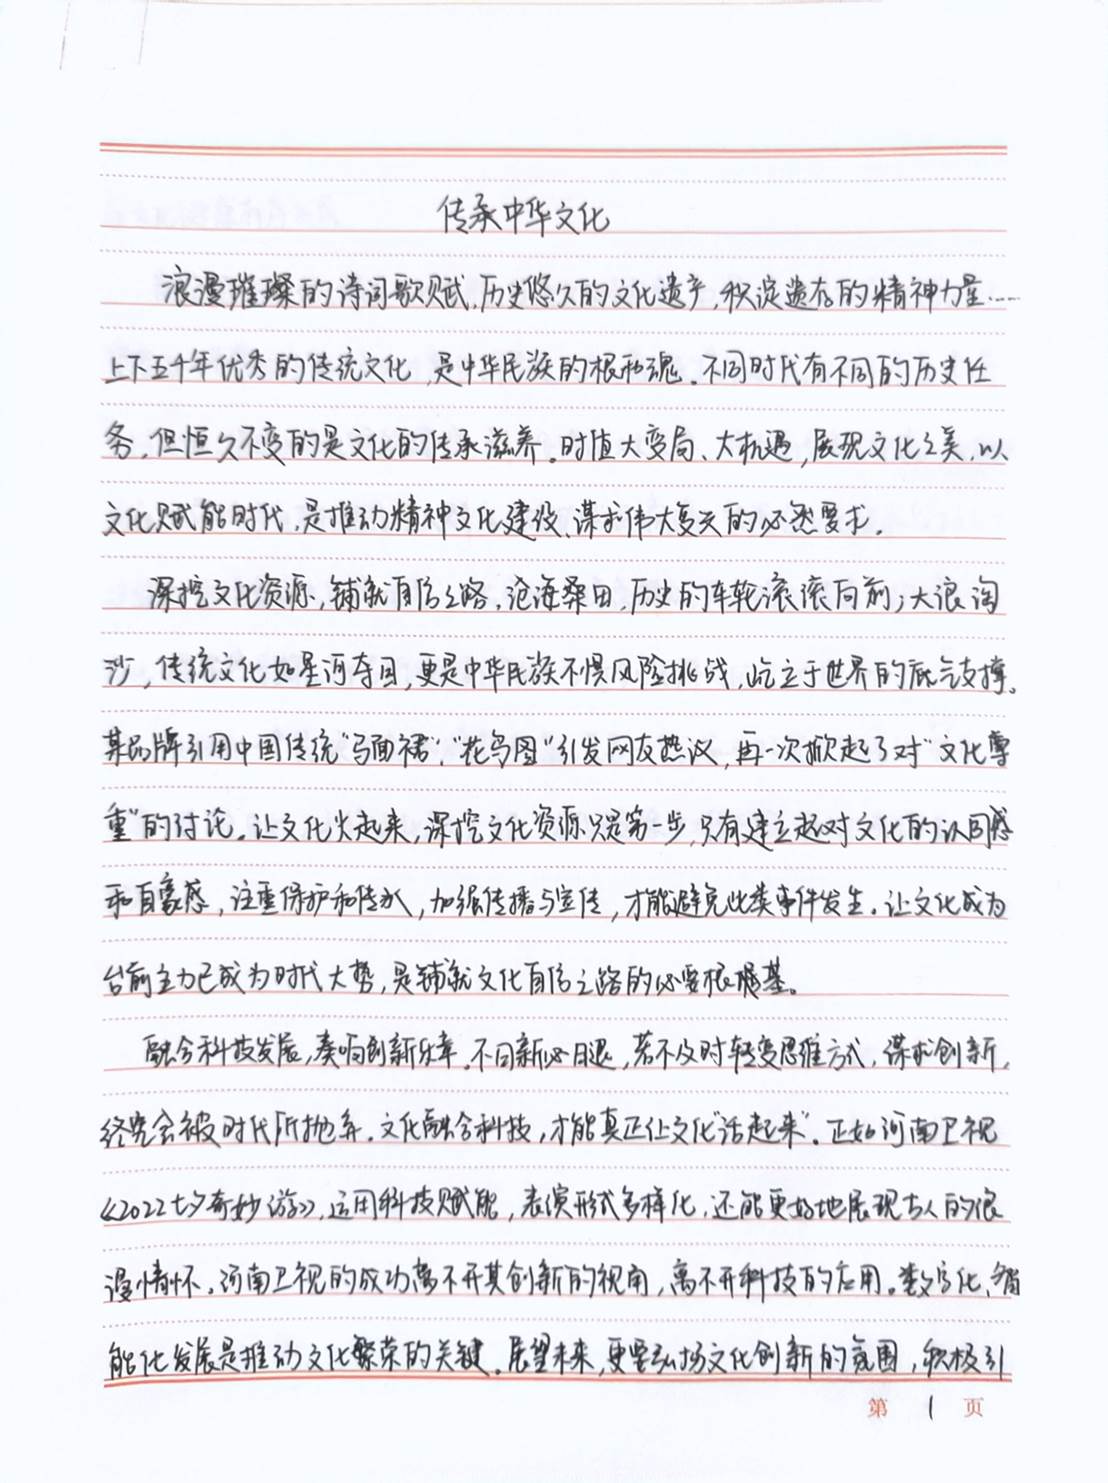 传承中华文化
浪漫璀璨的诗词歌赋,历史悠久的文化遗产,积淀遗存的精神力量……
上下五千年优秀的传统文化,是中华民族的根和魂。不同时代有不同的历史任
务,但恒久不变的是文化的传承滋养。时值大变局、大机遇,展现文化之美,以
文化赋能时代,是推动精神文化建设、谋求伟大复兴的必然要求。
深挖文化资源,铺就自信之路。沧海桑田,历史的车轮滚滚向前;大浪淘
沙,传统文化如星河夺目,更是中华民族不惧风险挑战,屹立于世界的底气支撑。
某品牌引用中国传统“马面裙”、“花鸟图”引发网友热议,再一次掀起了对“文化尊
重”的讨论。让文化火起来,深挖文化资源只是第一步,只有建立起对文化的认同感
和自豪感,注重保护和传承,加强传播与宣传,才能避免此类事件发生。让文化成为
台前主力已成为时代大势,是铺就文化自信之路的必要根基。
融合科技发展,奏响创新乐章。不日新必日退,若不及时转变思维方式,谋求创新,
终究会被时代所抛弃。文化融合科技,才能真正让文化“活起来”。正如河南卫视
《2022七夕奇妙游》,运用科技赋能,表演形式多样化,还能更好地展现古人的浪
漫情怀。河南卫视的成功离不开其创新的视角,离不开科技的应用。数字化、智
能化发展是推动文化繁荣的关键。展望未来,更要弘扬文化创新的氛围,积极引
第 1 页